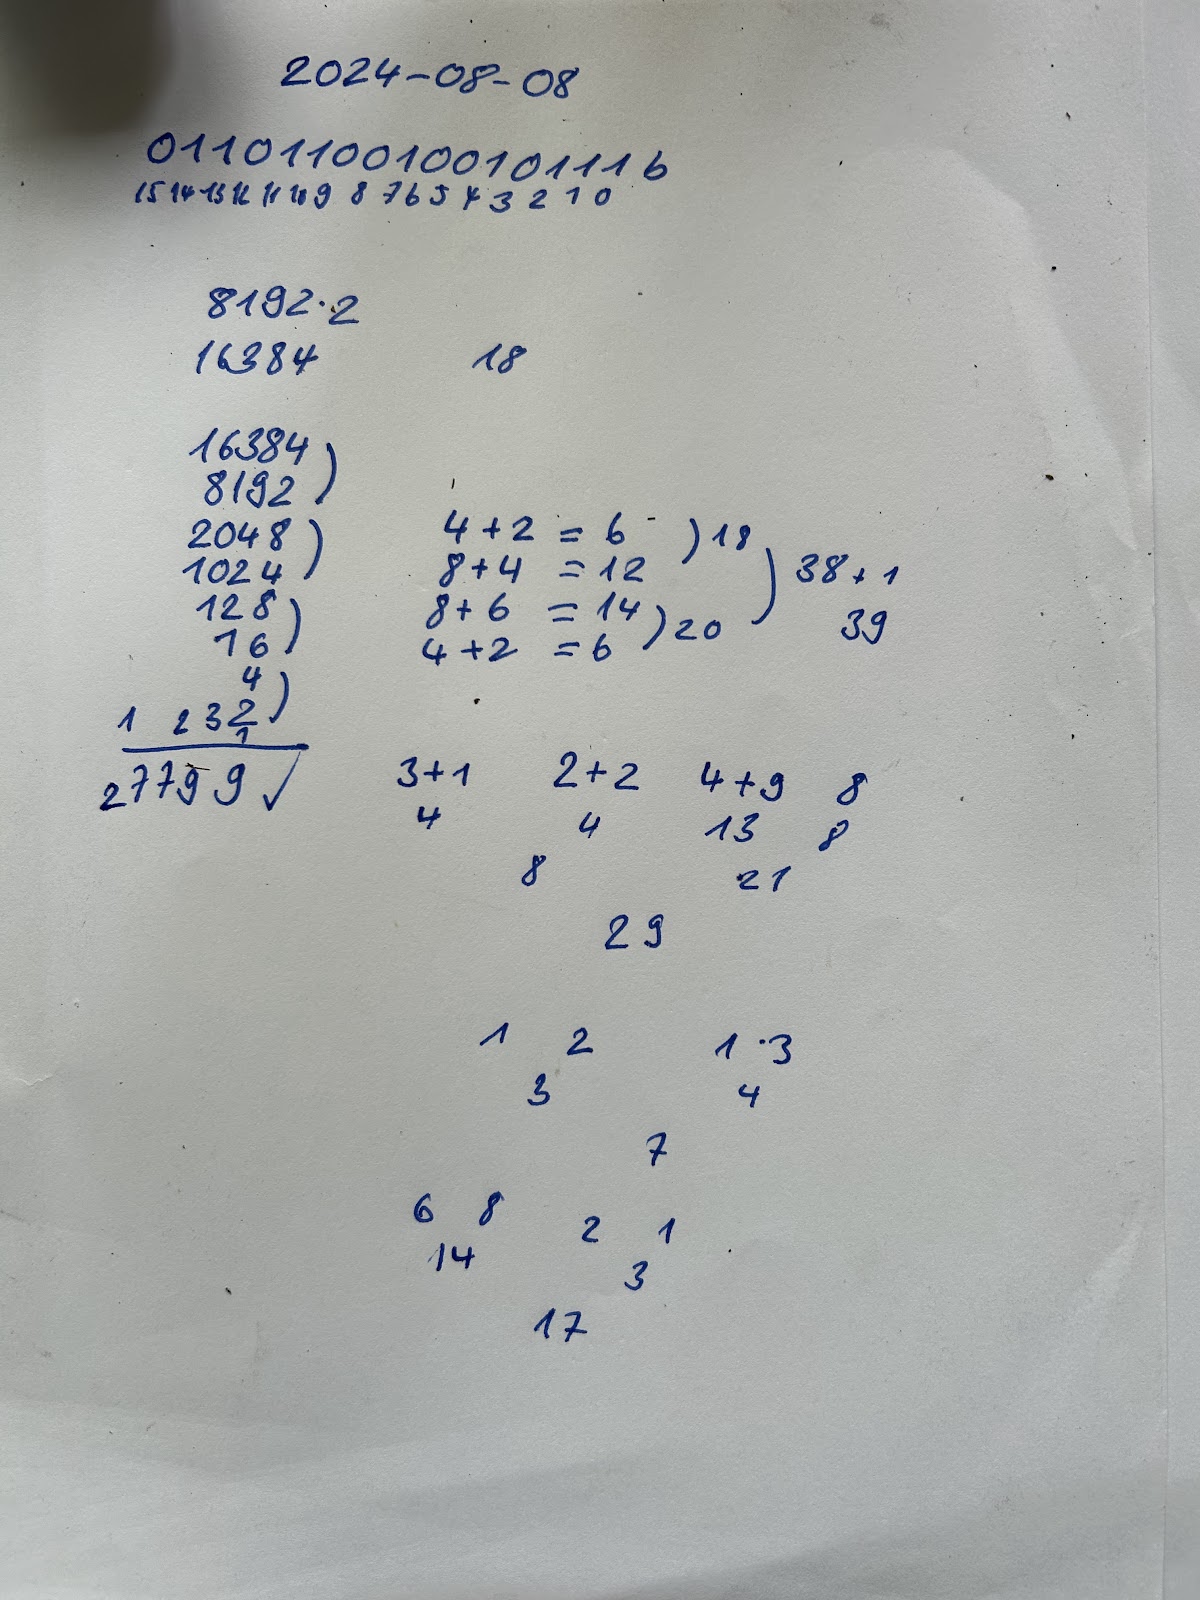 2024-08-08
0110110010010111 b
15 14 13 12 11 10 9 8 7 6 5 4 3 2 1 0
8192·2
16384 18
16384)
8192)
2048) 4+2 = 6 )18
1024) 8+4 = 12 ) 38+1
128) 8+6 = 14 )20 39
16) 4+2 = 6
4)
1 2 3 2)
1
27799 ✓ 3+1 2+2 4+9 8
4 4 13 8
8 21
29
1 2 1·3
3 4
7
6 8 2 1
14 3
17